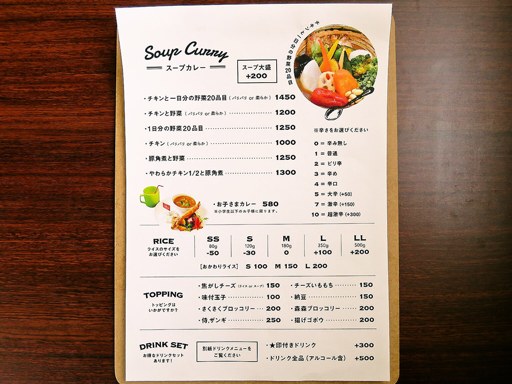 Soup Curry
スープカレー
スープ大盛
+200
チキンと一日分の野菜20品目
・チキンと一日分の野菜20品目(パリパリ or 柔らか) 1450
・チキンと野菜(パリパリ or 柔らか) 1200
・1日分の野菜20品目 1250
・チキン(パリパリ or 柔らか) 1000
・豚角煮と野菜 1250
・やわらかチキン1/2と豚角煮 1300
・お子さまカレー 580
※小学生以下のお子様に限ります。
※辛さをお選びください
0 = 辛み無し
1 = 普通
2 = ピリ辛
3 = 辛め
4 = 辛口
5 = 大辛(+50)
7 = 激辛(+150)
10 = 超激辛(+300)
RICE
ライスのサイズを
お選びください
SS S M L LL
80g 120g 180g 350g 500g
-50 -30 0 +100 +200
[おかわりライス] S 100 M 150 L 200
TOPPING
トッピングは
いかがですか?
・焦がしチーズ 150 ・チーズいももち 150
・味付玉子 100 ・納豆 150
・さくさくブロッコリー 200 ・森森ブロッコリー 200
・侍、ザンギ 250 ・揚げゴボウ 200
DRINK SET
お得なドリンクセット
あります!
別紙ドリンクメニューを
ご覧ください
・★印付きドリンク +300
・ドリンク全品(アルコール含) +500